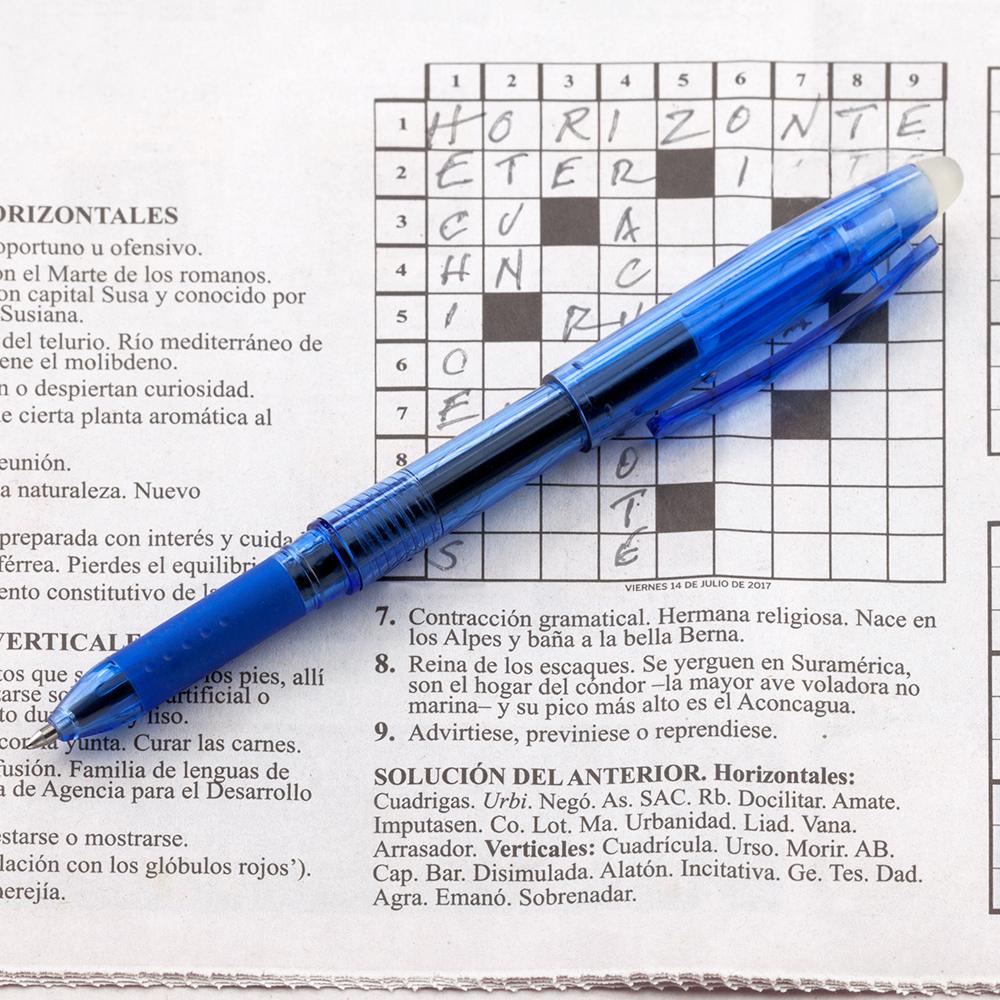 1 2 3 4 5 6 7 8 9
1 H O R I Z O N T E
2 E T E R I
3 C U A
4 H N C
5 I R U
6 O
7 E
8 O
T
S E
VIERNES 14 DE JULIO DE 2017
ORIZONTALES
oportuno u ofensivo.
on el Marte de los romanos.
on capital Susa y conocido por
Susiana.
del telurio. Río mediterráneo de
ene el molibdeno.
n o despiertan curiosidad.
e cierta planta aromática al
eunión.
a naturaleza. Nuevo
preparada con interés y cuida
férrea. Pierdes el equilibri
ento constitutivo de la
VERTICALE
tos que s los pies, allí
tarse so artificial o
to du y liso.
cor la yunta. Curar las carnes.
fusión. Familia de lenguas de
a de Agencia para el Desarrollo
estarse o mostrarse.
lación con los glóbulos rojos’).
herejía.
7. Contracción gramatical. Hermana religiosa. Nace en
los Alpes y baña a la bella Berna.
8. Reina de los escaques. Se yerguen en Suramérica,
son el hogar del cóndor –la mayor ave voladora no
marina– y su pico más alto es el Aconcagua.
9. Advirtiese, previniese o reprendiese.
SOLUCIÓN DEL ANTERIOR. Horizontales:
Cuadrigas. Urbi. Negó. As. SAC. Rb. Docilitar. Amate.
Imputasen. Co. Lot. Ma. Urbanidad. Liad. Vana.
Arrasador. Verticales: Cuadrícula. Urso. Morir. AB.
Cap. Bar. Disimulada. Alatón. Incitativa. Ge. Tes. Dad.
Agra. Emanó. Sobrenadar.